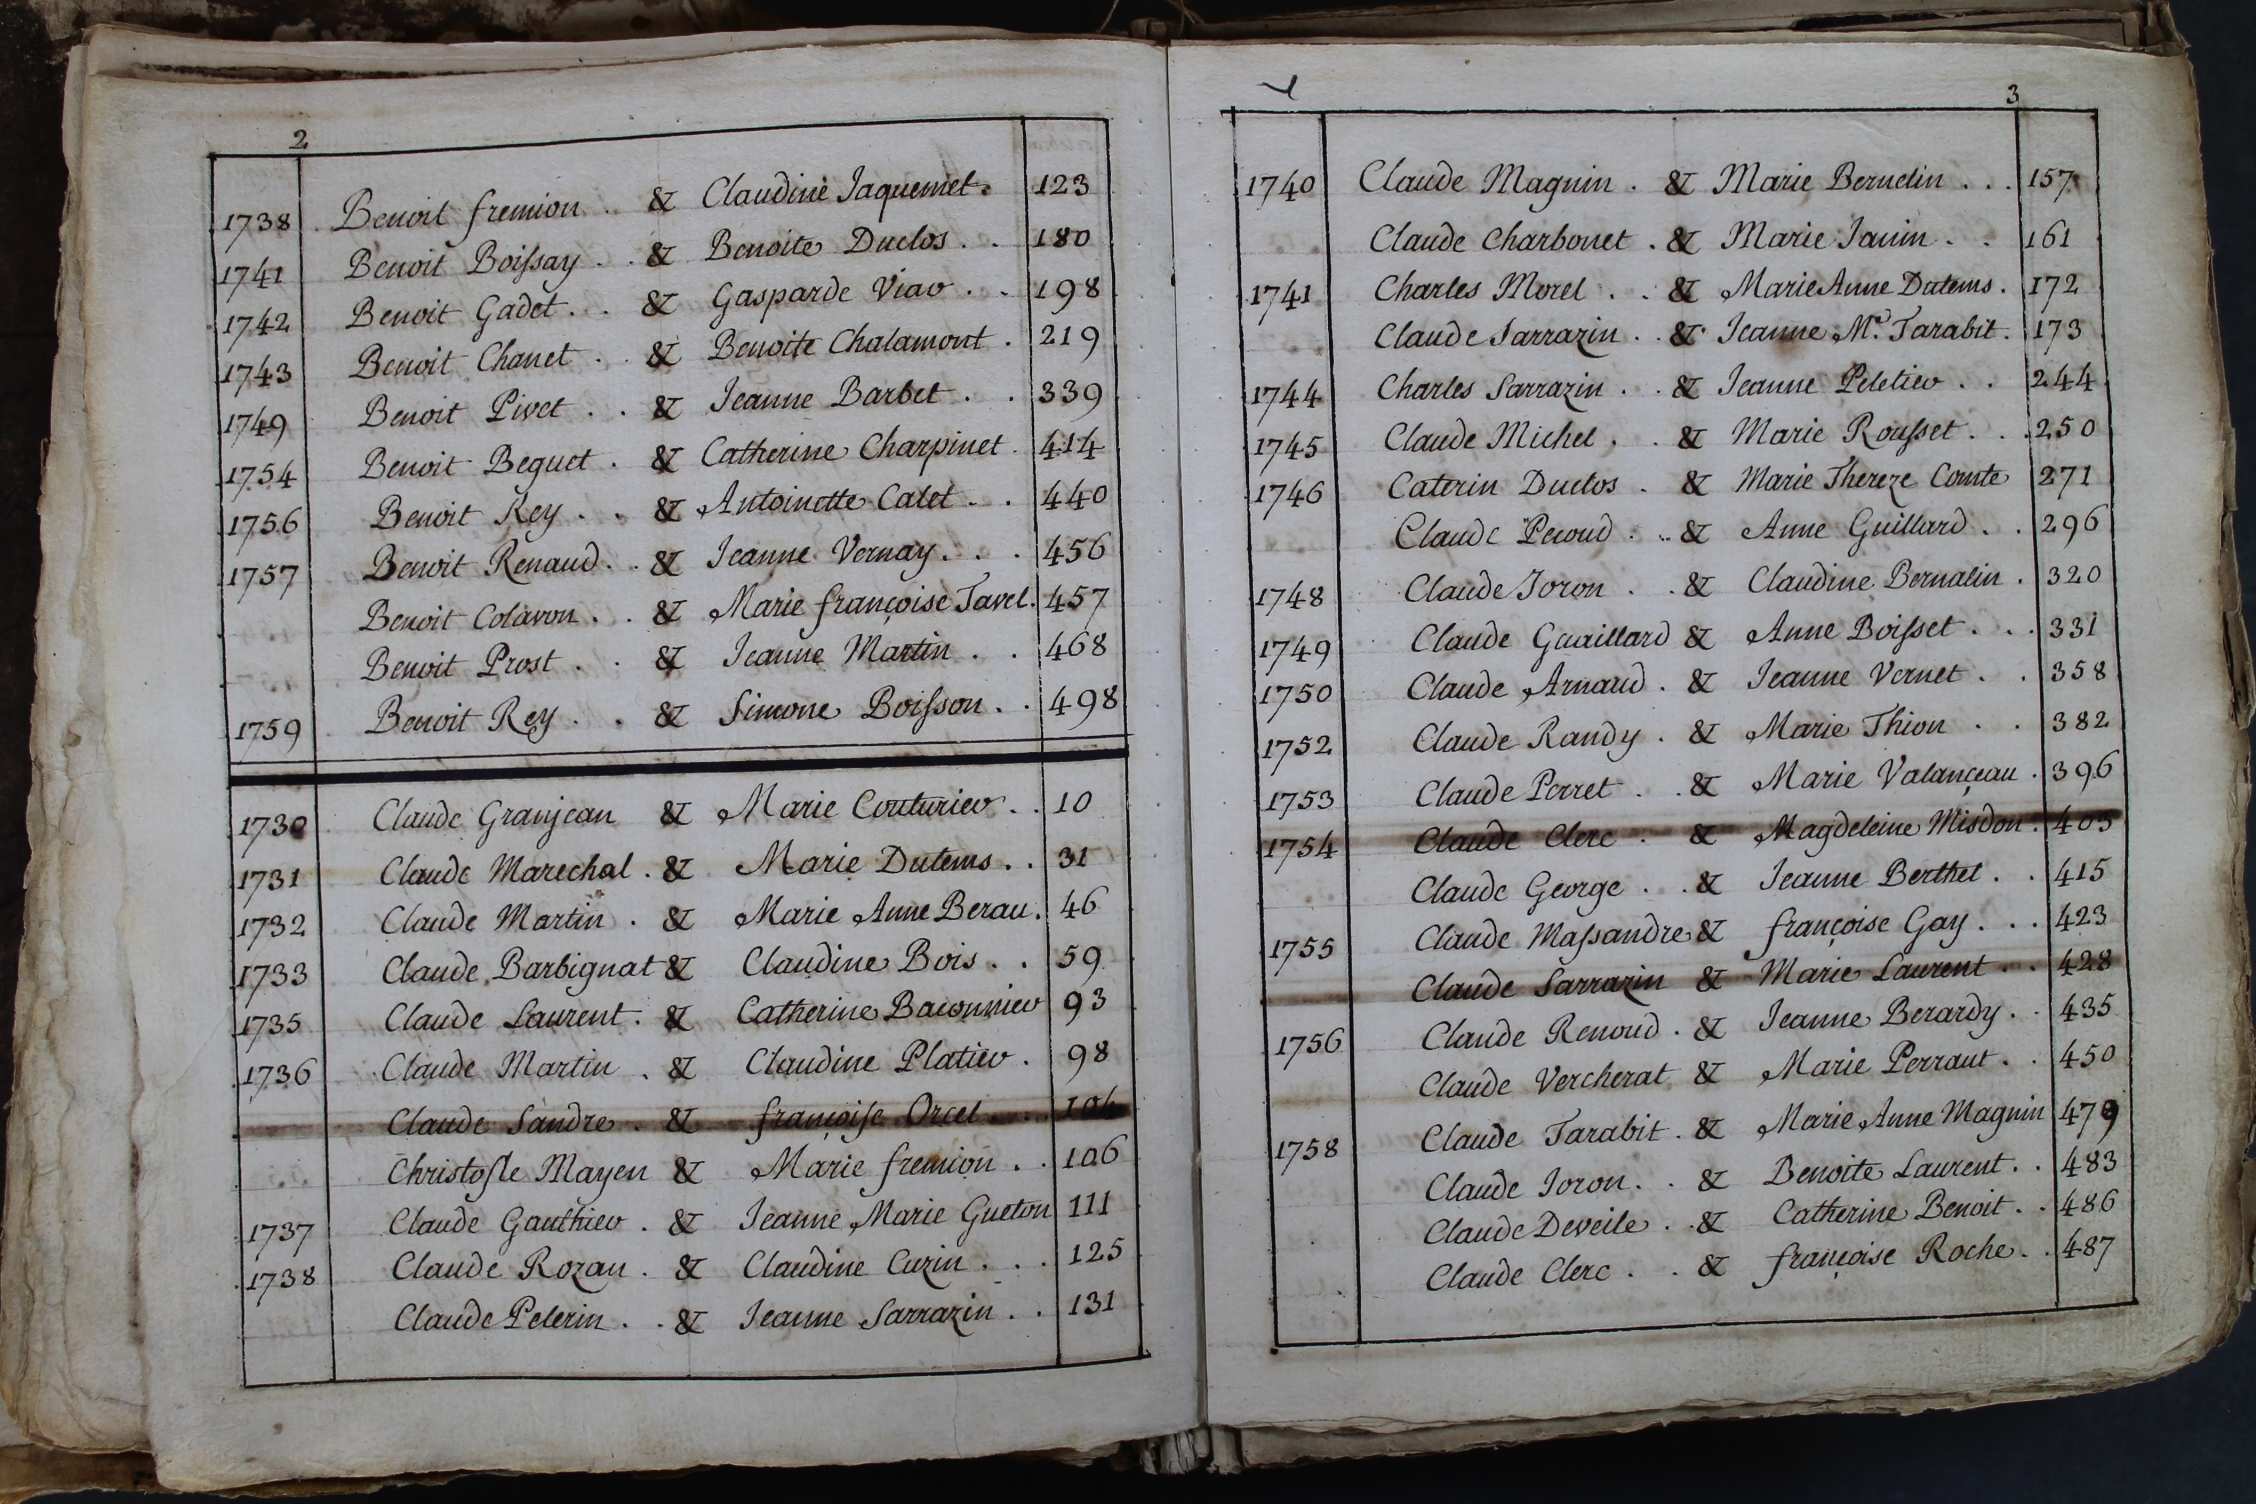 2
1738 Benoit fremion . & Claudine Jaquemet. 123
1741 Benoit Boissay . . & Benoite Duclos . . 180
1742 Benoit Gadet . . & Gasparde Viar . . 198
1743 Benoit Chanet . . & Benoite Chalamont . 219
1749 Benoit Pivet . . & Jeanne Barbet . . 339
1754 Benoit Beguet . & Catherine Charpinet . 414
1756 Benoit Rey . . & Antoinette Calet . . 440
1757 Benoit Renaud . . & Jeanne Vernay . . . 456
Benoit Colavon . . & Marie françoise Tavel . 457
Benoit Prost . . & Jeanne Martin . . 468
1759 Benoit Rey . . & Simone Boisson . . 498
1730 Claude Granjean & Marie Couturier . . 10
1731 Claude Marechal . & Marie Dutems . . 31
1732 Claude Martin . & Marie Anne Berau . 46
1733 Claude Barbignat & Claudine Bois . . 59
1735 Claude Laurent . & Catherine Baconnier 93
1736 Claude Martin . & Claudine Platier . 98
Claude Sandre . & françoise Orcel . . 104
Christofle Mayen & Marie fremion . . 106
1737 Claude Gauthier . & Jeanne Marie Gueton 111
1738 Claude Rozan . & Claudine Curin . . . 125
Claude Pelerin . . & Jeanne Sarrazin . . 131
3
1740 Claude Magnin . & Marie Bernelin . . . 157
Claude Charbonet . & Marie Janin . . 161
1741 Charles Morel . . & Marie Anne Dutems . 172
Claude Sarrazin . . & Jeanne Me. Tarabit . 173
1744 Charles Sarrazin . . & Jeanne Peletier . . 244
1745 Claude Michel . . & Marie Rousset . . . 250
1746 Caterin Duclos . & Marie Thereze Comte 271
Claude Pecoud . . & Anne Guillard . . 296
1748 Claude Joron . . & Claudine Bernalin . 320
1749 Claude Guaillard & Anne Boisset . . . 331
1750 Claude Arnaud . & Jeanne Vernet . . 358
1752 Claude Randy . & Marie Thion . . 382
1753 Claude Perret . . & Marie Valançeau . 396
1754 Claude Clerc . & Magdeleine Misdon . 403
Claude George . . & Jeanne Berthet . . 415
1755 Claude Massandre & françoise Gay . . . 423
Claude Sarrazin & Marie Laurent . . 428
1756 Claude Renoud . & Jeanne Berardy . . 435
Claude Vercherat & Marie Perraut . . 450
1758 Claude Tarabit . & Marie Anne Magnin 479
Claude Joron . . & Benoite Laurent . . 483
Claude Deveile . . & Catherine Benoit . . 486
Claude Clerc . . & françoise Roche . . 487